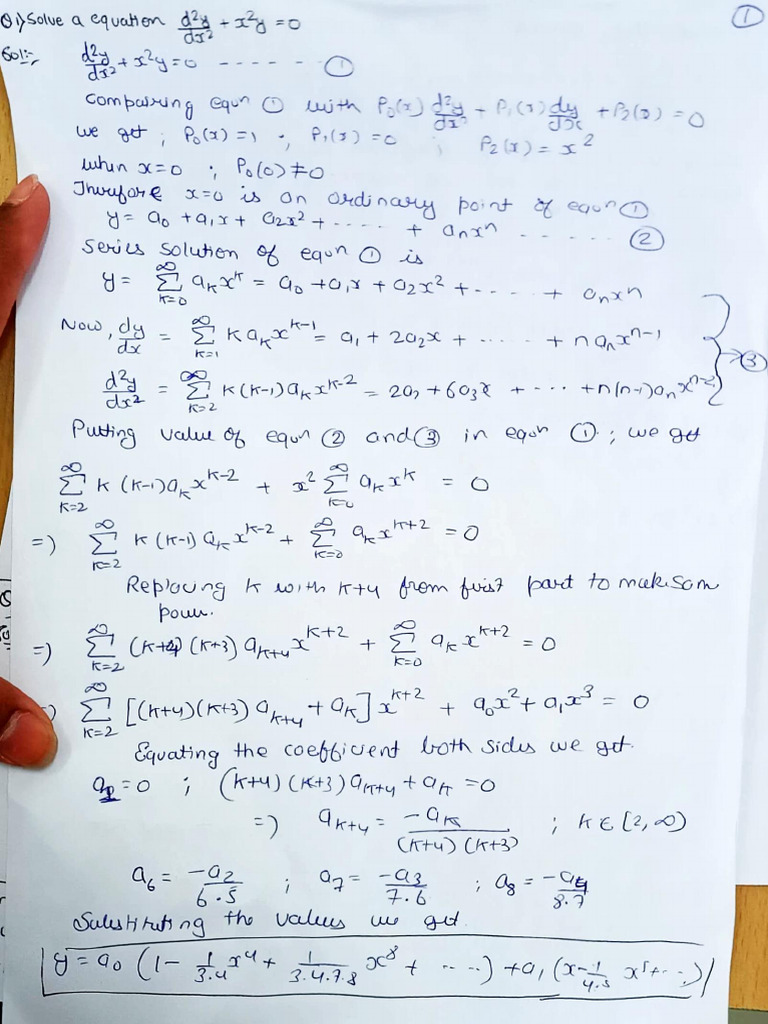 ①
Q1) Solve a equation d²y/dx² + x²y = 0
Sol:- d²y/dx² + x²y = 0 - - - - - - ①
Comparing equn ① with P₀(x) d²y/dx² + P₁(x) dy/dx + P₂(x) = 0
we get ; P₀(x) = 1 ; P₁(x) = 0 ; P₂(x) = x²
when x=0 ; P₀(0) ≠ 0
Therefore x=0 is an ordinary point of equn ①
y = a₀ + a₁x + a₂x² + - - - - + aₙxⁿ - - - - - - ②
Series solution of equn ① is
y = ∞ Σ K=0 aₖxᵏ = a₀ + a₁x + a₂x² + - - - - + aₙxⁿ
Now, dy/dx = ∞ Σ K=1 K aₖxᵏ⁻¹ = a₁ + 2a₂x + - - - - + n aₙxⁿ⁻¹ → ③
d²y/dx² = ∞ Σ K=2 K(K-1) aₖxᵏ⁻² = 2a₂ + 6a₃x + - - - + n(n-1)aₙxⁿ⁻²
Putting value of equn ② and ③ in equn ① ; we get
∞ Σ K=2 K(K-1)aₖxᵏ⁻² + x² ∞ Σ K=0 aₖxᵏ = 0
=) ∞ Σ K=2 K(K-1) aₖxᵏ⁻² + ∞ Σ K=0 aₖxᵏ⁺² = 0
Replacing K with K+4 from first part to mak sam
power.
=) ∞ Σ K=2 (K+4)(K+3) aₖ₊₄xᵏ⁺² + ∞ Σ K=0 aₖxᵏ⁺² = 0
=) ∞ Σ K=2 [(K+4)(K+3) aₖ₊₄ + aₖ] xᵏ⁺² + a₀x² + a₁x³ = 0
Equating the coefficent both sides we get.
= 0 ; (K+4)(K+3)aₖ₊₄ + aₖ = 0
=) aₖ₊₄ = -aₖ/(K+4)(K+3) ; K ∈ [2, ∞)
a₆ = -a₂/6.5 ; a₇ = -a₃/7.6 ; a₈ = -a₄/8.7
Substituting the values we get.
y = a₀ (1 - 1/3.4 x⁴ + 1/3.4.7.8 x⁸ + - - - -) + a₁ (x - 1/4.5 x⁵ + - - -)